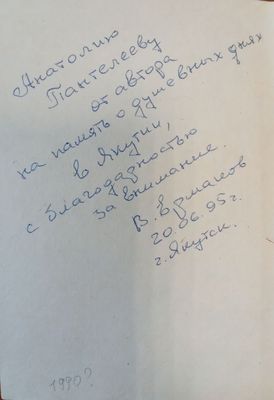 Анатолию
Пантелееву
от автора
на память о душевных днях
в Якутии,
с благодарностью
за внимание.
В. Ермаков
20.06.95г.
г. Якутск.
1990?